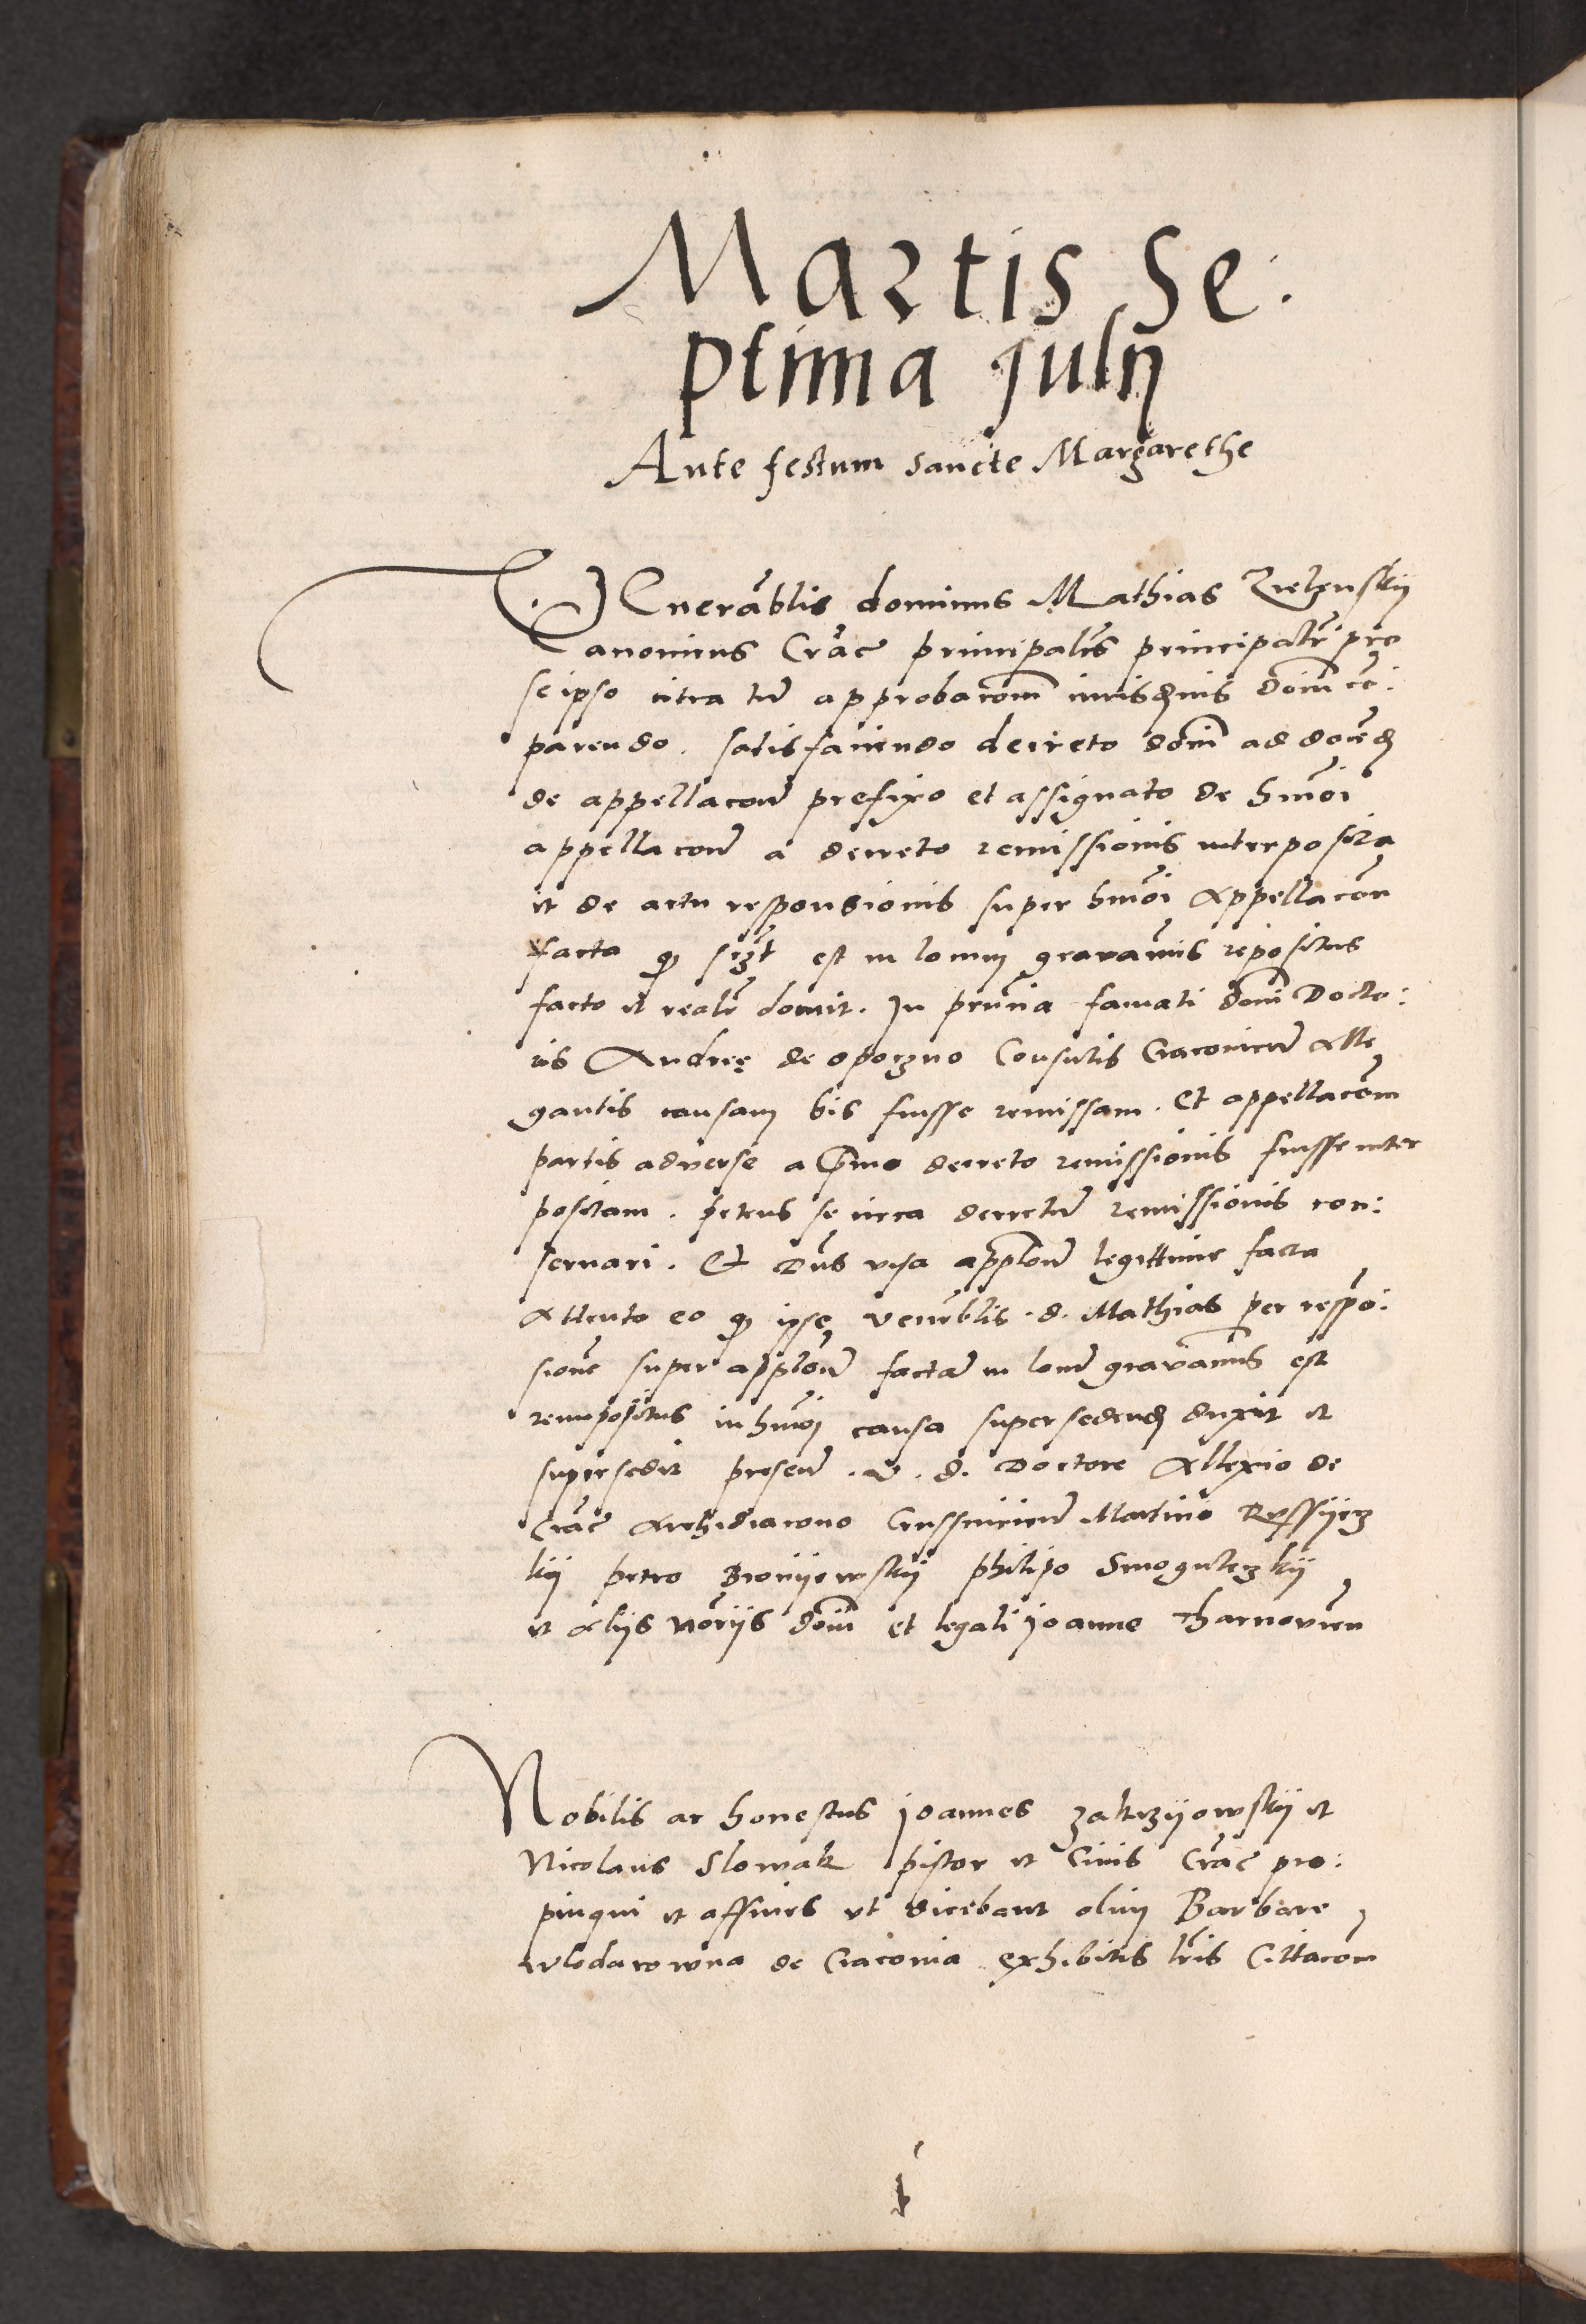 Martis Se.
ptima Julij
Ante festum sancte Margarethe
Venerablis dominus Mathias
Canonicus Crac principalis principalr pro
se ipso citra tn approbacom iurisdnis domi ce:
parendo. satisfaciendo decreto domi ad docend
de appellacone prefixo et assignato de hmoi
appellacone a decreto remissionis interposita
et de actu responsionis super hmoi Appellacon
facta est in locum gravaminis repositus
facto et realr docuit. In pruncia famati domi Docto:
ris Andree de opoczno Consulis Cracoviens Alle
gantis causam bis fuisse remissam. Et appellacom
partis adverse a Primo decreto remissionis fuisse inter
positam. petens se circa decretum remissionis con:
servari. Et Dns visa applone legittime facta
Attento eo q ipse venerblis. d. Mathias per respo:
sione super applone facta in locum gravamis est
reimpositus in hmoi causa supersedend duxit et
supersedit presen. v. d. Doctore Allexio de
Crac Archidiacono Martino
kij petro Bronyewskij philipo Smogulerzkij
et Aliis Notrijs domi et legali joanne Tharnovien
Nobilis ac honestus joannes Zakrzyowskij et
Nicolaus Slowak pistor et Civis Crac pro:
pinqui et affines ut dicebant olim Barbare
wlodarowna de Cracovia exhibitis lris Cittacom